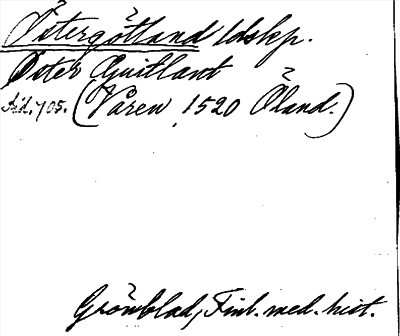 Östergötland ldskp.
Öster Guitlant
Sid. 705. (Våren 1520 Öland.)
Grönblad, Finl. med. hist.